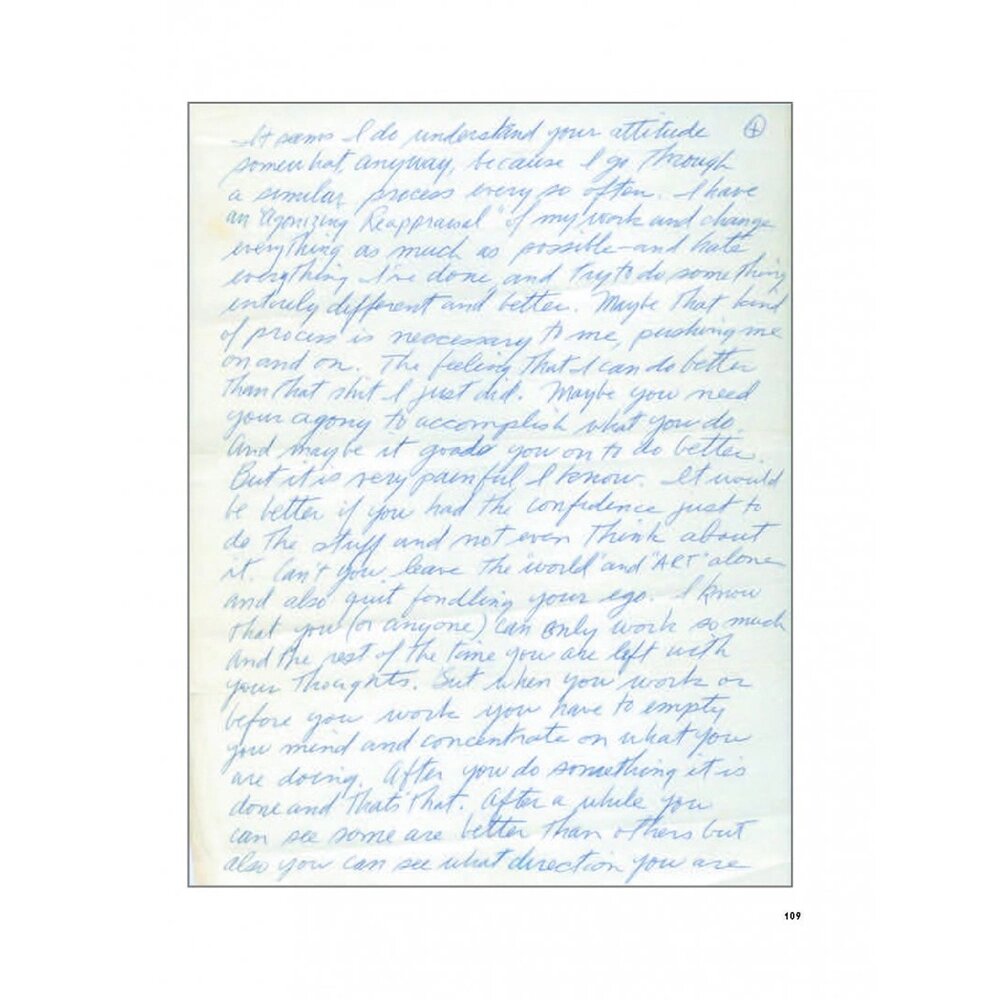 It seems I do understand your attitude 4
somewhat, anyway, because I go through
a similar process every so often. I have
an "Agonizing Reappraisal" of my work and change
everything as much as possible—and hate
everything I've done, and try to do something
entirely different and better. Maybe that kind
of process is neccessary to me, pushing me
on and on. The feeling that I can do better
than that shit I just did. Maybe you need
your agony to accomplish what you do.
And maybe it goads you on to do better.
But it is very painful I know. It would
be better if you had the confidence just to
do the stuff and not even think about
it. Can't you leave the "world" and "ART" alone
and also quit fondling your ego. I know
that you (or anyone) can only work so much
and the rest of the time you are left with
your thoughts. But when you work or
before you work you have to empty
you mind and concentrate on what you
are doing. After you do something it is
done and that's that. After a while you
can see some are better than others but
also you can see what direction you are
109